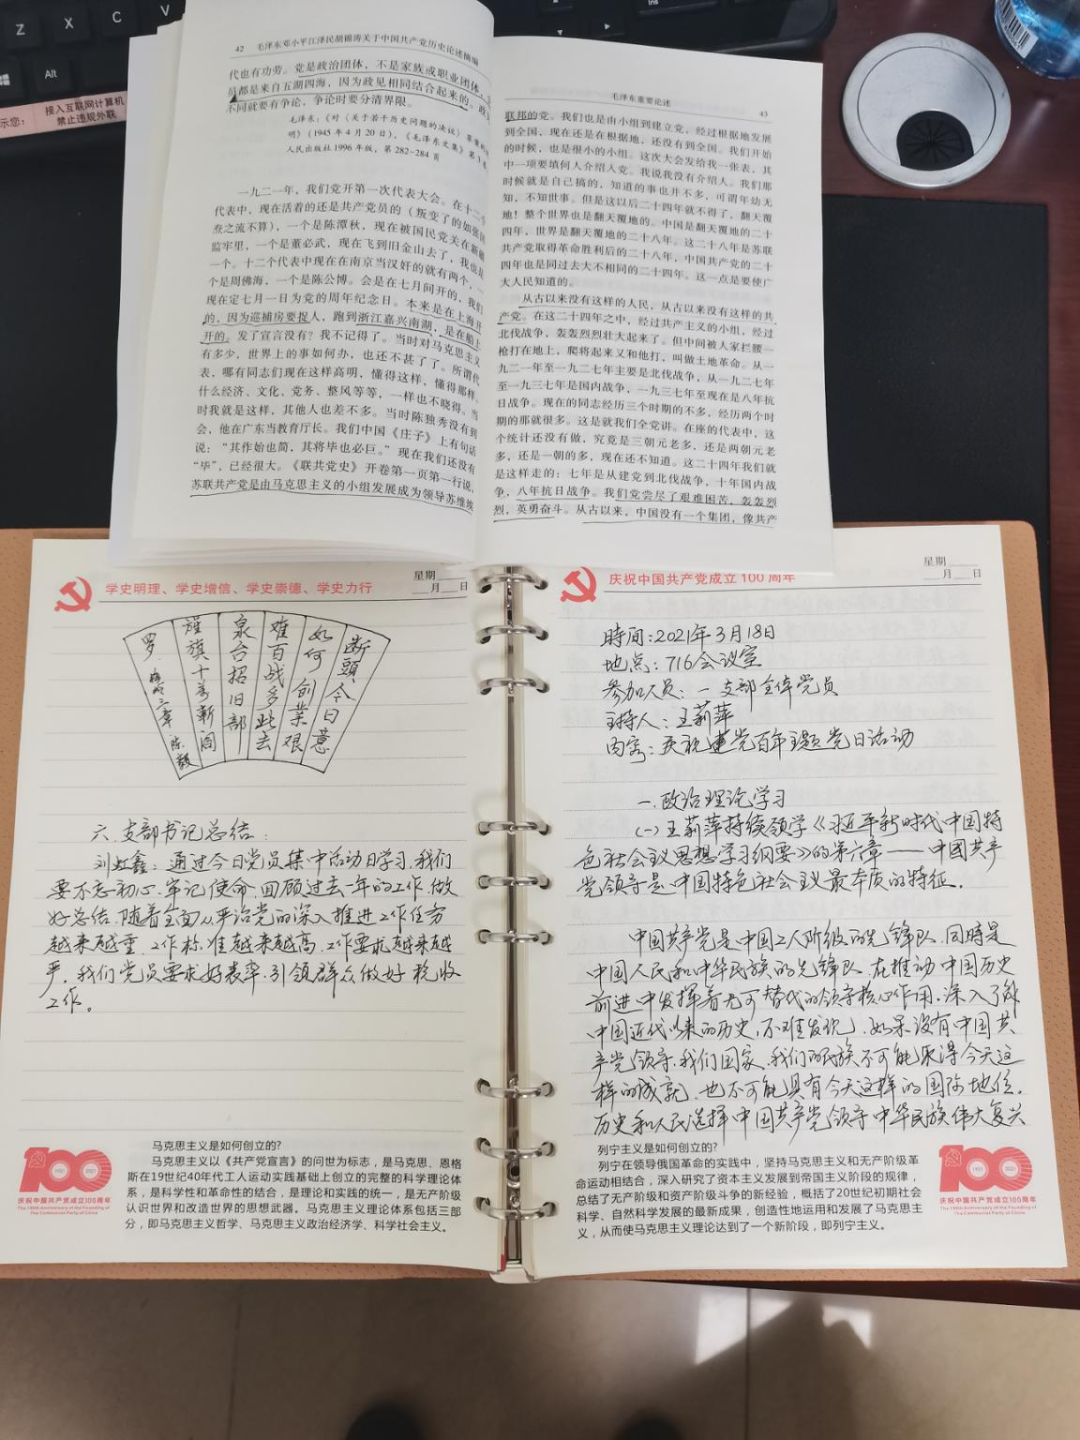 Z
X
C
Alt
接入互联网计算机
禁止违规外联
示您：
42 毛泽东邓小平江泽民胡锦涛关于中国共产党历史论述摘编
代也有功劳。党是政治团体，不是家族或职业团体，
员都是来自五湖四海，因为政见相同结合起来的。政
不同就要有争论，争论时要分清界限。
毛泽东：《对〈关于若干历史问题的决议〉草案的
明》（1945年4月20日），《毛泽东文集》第
人民出版社1996年版，第282-284页
一九二一年，我们党开第一次代表大会。在十二
代表中，现在活着的还是共产党员的（叛变了的如张国
焘之流不算），一个是陈潭秋，现在被国民党关在新疆
监牢里，一个是董必武，现在飞到旧金山去了，我也是
一个。十二个代表中现在在南京当汉奸的就有两个，一
个是周佛海，一个是陈公博。会是在七月间开的，我们
现在定七月一日为党的周年纪念日。本来是在上海开
的，因为巡捕房要捉人，跑到浙江嘉兴南湖，是在船上
开的。发了宣言没有？我不记得了。当时对马克思主义
有多少，世界上的事如何办，也还不甚了了。所谓代
表，哪有同志们现在这样高明，懂得这样，懂得那样。
什么经济、文化、党务、整风等等，一样也不晓得。当
时我就是这样，其他人也差不多。当时陈独秀没有到
会，他在广东当教育厅长。我们中国《庄子》上有句话
说：“其作始也简，其将毕也必巨。”现在我们还没有
“毕”，已经很大。《联共党史》开卷第一页第一行说，
苏联共产党是由马克思主义的小组发展成为领导苏维埃
毛泽东重要论述 43
联邦的党。我们也是由小组到建立党，经过根据地发展
到全国，现在还是在根据地，还没有到全国。我们开始
的时候，也是很小的小组。这次大会发给我一张表，其
中一项要填何人介绍入党。我说我没有介绍人。我们那
时候就是自己搞的，知道的事也并不多，可谓年幼无
知，不知世事。但是这以后二十四年就不得了，翻天覆
地！整个世界也是翻天覆地的。中国是翻天覆地的二十
四年，世界是翻天覆地的二十八年。这二十八年是苏联
共产党取得革命胜利后的二十八年，中国共产党的二十
四年也是同过去大不相同的二十四年。这一点是要使广
大人民知道的。
从古以来没有这样的人民，从古以来没有这样的共
产党。在这二十四年之中，经过共产主义的小组，经过
北伐战争，轰轰烈烈壮大起来了。但中间被人家拦腰一
枪打在地上，爬将起来又和他打，叫做土地革命。从一
九二一年至一九二七年主要是北伐战争，从一九二七年
至一九三七年是国内战争，一九三七年至现在是八年抗
日战争。现在的同志经历三个时期的不多，经历两个时
期的那就很多。这是就我们全党讲。在座的代表中，这
个统计还没有做，究竟是三朝元老多，还是两朝元老
多，还是一朝的多，现在还不知道。这二十四年我们就
是这样走的：七年是从建党到北伐战争，十年国内战
争，八年抗日战争。我们党尝尽了艰难困苦，轰轰烈
烈，英勇奋斗。从古以来，中国没有一个集团，像共产
学史明理、学史增信、学史崇德、学史力行
星期
月 日
断頭今日意
如何 创业艰
难百战多此去
泉台招旧部
旌旗十万斩阎
罗 梅岭三章 陈毅
六.支部书记总结：
刘虹鑫：通过今日党员集中活动日学习，我们
要不忘初心、牢记使命，回顾过去一年的工作，做
好总结，随着全面从严治党的深入推进，工作任务
越来越重，工作标准越来越高，工作要求越来越
严，我们党员要求好表率，引领群众做好税收
工作。
马克思主义是如何创立的？
马克思主义以《共产党宣言》的问世为标志，是马克思、恩格
斯在19世纪40年代工人运动实践基础上创立的完整的科学理论体
系，是科学性和革命性的结合，是理论和实践的统一，是无产阶级
认识世界和改造世界的思想武器。马克思主义理论体系包括三部
分，即马克思主义哲学、马克思主义政治经济学、科学社会主义。
100
庆祝中国共产党成立100周年
The 100th Anniversary of the Founding of
The Communist Party of China
庆祝中国共产党成立100周年
星期
月 日
时间：2021年3月18日
地点：716会议室
参加人员：一支部全体党员
主持人：王莉萍
内容：庆祝建党百年主题党日活动
一.政治理论学习
（一）王莉萍持续领学《习近平新时代中国特
色社会主义思想学习纲要》的第六章——中国共产
党领导是中国特色社会主义最本质的特征。
中国共产党是中国工人阶级的先锋队，同时是
中国人民和中华民族的先锋队，在推动中国历史
前进中发挥着无可替代的领导核心作用。深入了解
中国近代以来的历史，不难发现，如果没有中国共
产党领导，我们国家、我们的民族不可能取得今天这
样的成就，也不可能具有今天这样的国际地位。
历史和人民选择中国共产党领导中华民族伟大复兴
列宁主义是如何创立的？
列宁在领导俄国革命的实践中，坚持马克思主义和无产阶级革
命运动相结合，深入研究了资本主义发展到帝国主义阶段的规律，
总结了无产阶级和资产阶级斗争的新经验，概括了20世纪初期社会
科学、自然科学发展的最新成果，创造性地运用和发展了马克思主
义，从而使马克思主义理论达到了一个新阶段，即列宁主义。
100
庆祝中国共产党成立100周年
The 100th Anniversary of the Founding of
The Communist Party of China